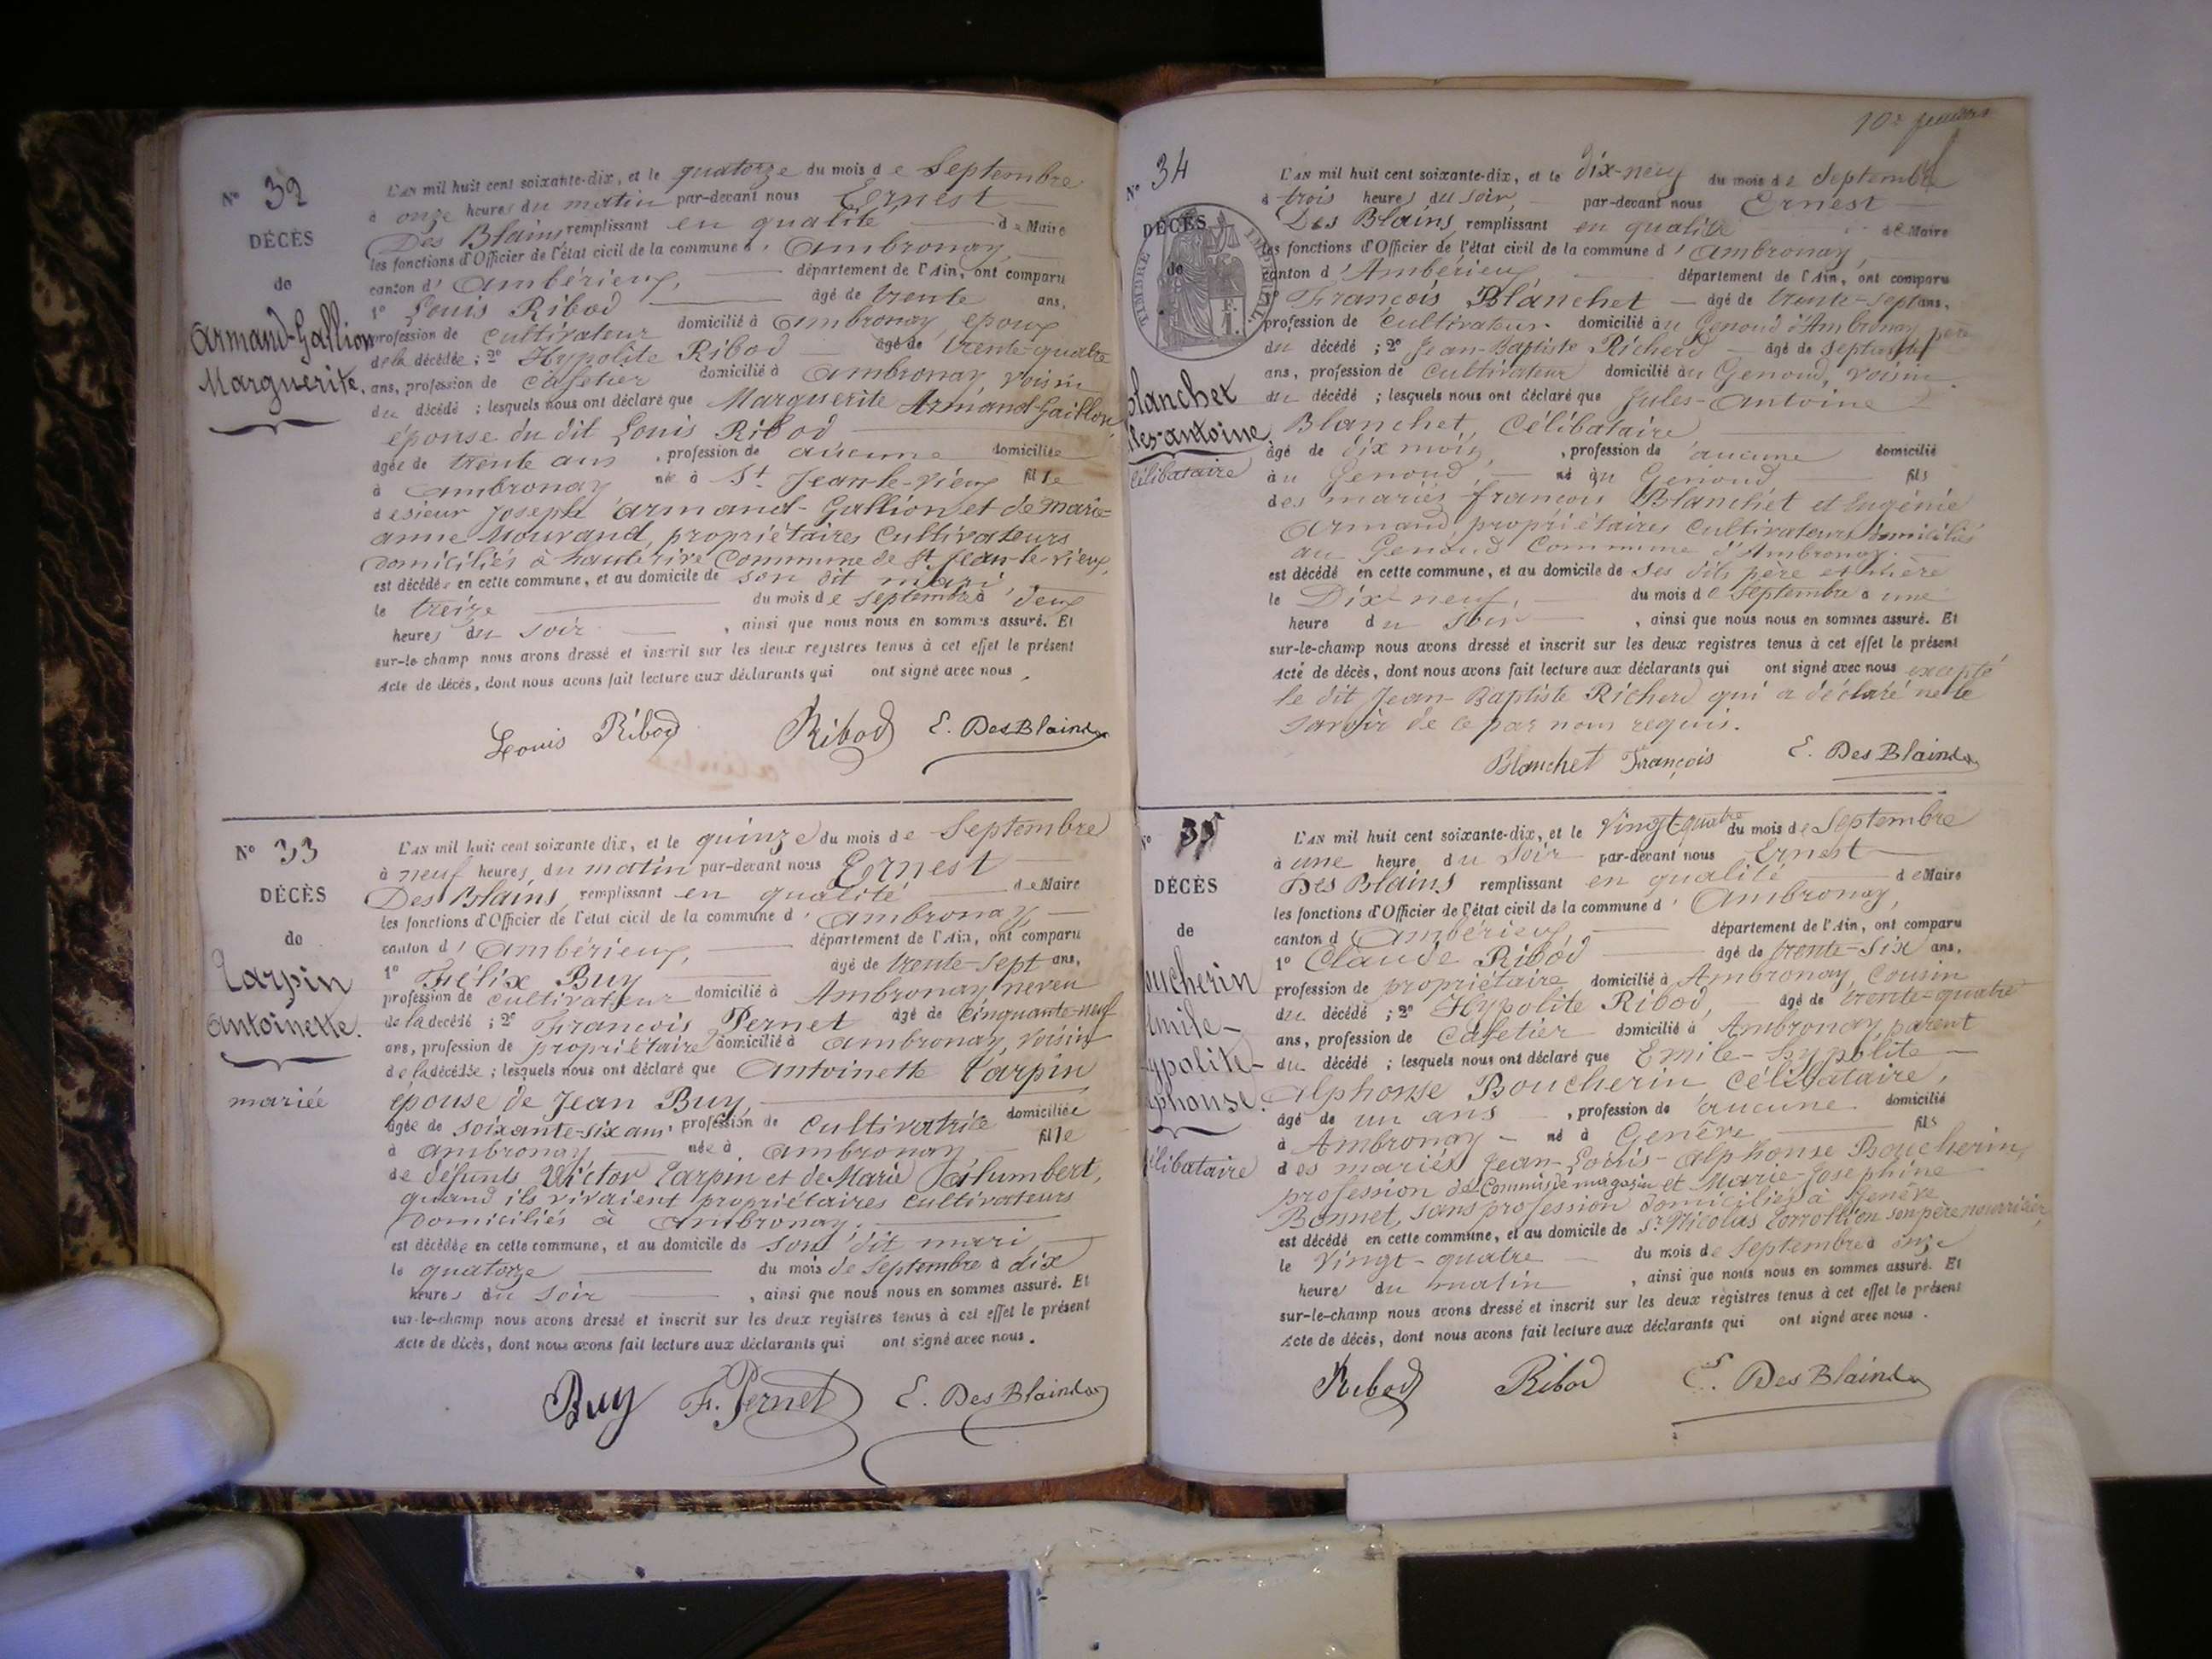 N° 32
DÉCÈS
de
Armand-Gallion
Marguerite.
L'AN mil huit cent soixante-dix, et le quatorze du mois de Septembre
à onze heures du matin par-devant nous Ernest
Des Blains remplissant en qualité de Maire
les fonctions d'Officier de l'état civil de la commune d'Ambronay,
canton d'Ambérieux, département de l'Ain, ont comparu
1° Louis Ribod âgé de trente ans,
profession de cultivateur domicilié à Ambronay, époux
de la décédée ; 2° Hypolite Ribod âgé de trente-quatre
ans, profession de cafetier domicilié à Ambronay, voisin
du décédé ; lesquels nous ont déclaré que Marguerite Armand-Gaillon,
épouse du dit Louis Ribod
âgée de trente ans, profession de aucune domiciliée
à Ambronay née à St Jean-le-Vieux fille
de sieur Joseph Armand-Gallion et de Marie-
anne Mourand, propriétaires Cultivateurs
domiciliés à hauterive Commune de St Jean-le-Vieux,
est décédée en cette commune, et au domicile de son dit mari,
le treize du mois de Septembre à deux
heures du soir, ainsi que nous nous en sommes assuré. Et
sur-le-champ nous avons dressé et inscrit sur les deux registres tenus à cet effet le présent
Acte de décès, dont nous avons fait lecture aux déclarants qui ont signé avec nous.
Louis Ribod Ribod E. Des Blains
N° 33
DÉCÈS
de
Tarpin
Antoinette.
mariée
L'AN mil huit cent soixante dix, et le quinze du mois de Septembre
à neuf heures du matin par-devant nous Ernest
Des Blains, remplissant en qualité de Maire
les fonctions d'Officier de l'état civil de la commune d'Ambronay,
canton d'Ambérieux, département de l'Ain, ont comparu
1° Félix Buy âgé de trente-sept ans,
profession de cultivateur domicilié à Ambronay neveu
de la décédé ; 2° François Pernet âgé de Cinquante-neuf
ans, profession de propriétaire domicilié à Ambronay, voisin
de la décédée ; lesquels nous ont déclaré que Antoinette Tarpin
épouse de Jean Buy,
âgée de soixante-six ans, profession de Cultivatrice domiciliée
à Ambronay née à Ambronay, fille
de défunts Victor Tarpin et de Marie Palumbert,
quand ils vivaient propriétaires cultivateurs
domiciliés à Ambronay.
est décédée en cette commune, et au domicile de son dit mari,
le quatorze du mois de Septembre à dix
heures du soir, ainsi que nous nous en sommes assuré. Et
sur-le-champ nous avons dressé et inscrit sur les deux registres tenus à cet effet le présent
Acte de décès, dont nous avons fait lecture aux déclarants qui ont signé avec nous.
Buy F. Pernet E. Des Blains
N° 34
DÉCÈS
de
TIMBRE IMPÉRIAL
Blanchet
les-antoine
célibataire
L'AN mil huit cent soixante-dix, et le dix-neuf du mois de Septembre
à trois heures du soir, par-devant nous Ernest
Des Blains, remplissant en qualité de Maire
les fonctions d'Officier de l'état civil de la commune d'Ambronay,
canton d'Ambérieux département de l'Ain, ont comparu
1° François Blanchet âgé de trente-sept ans,
profession de cultivateur domicilié au Genoud d'Ambronay père
du décédé ; 2° Jean-Baptiste Richerd âgé de
ans, profession de cultivateur domicilié au Genoud, voisin
du décédé ; lesquels nous ont déclaré que Jules-Antoine
Blanchet, Célibataire
âgé de dix mois, profession de aucune domicilié
au Genoud, né au Genoud fils
des mariés françois Blanchet et Eugénie
Armand propriétaires Cultivateurs domiciliés
au Genoud Commune d'Ambronay.
est décédé en cette commune, et au domicile de ses dits père et mère
le Dix-neuf, du mois de Septembre à une
heure du soir, ainsi que nous nous en sommes assuré. Et
sur-le-champ nous avons dressé et inscrit sur les deux registres tenus à cet effet le présent
Acte de décès, dont nous avons fait lecture aux déclarants qui ont signé avec nous excepté
le dit Jean-Baptiste Richerd qui a déclaré ne le
savoir de ce par nous requis.
Blanchet François E. Des Blains
N° 35
DÉCÈS
de
oucherin
Emile-
ypolite-
lphonse.
célibataire
L'AN mil huit cent soixante-dix, et le Vingt-quatre du mois de Septembre
à une heure du soir par-devant nous Ernest
Des Blains remplissant en qualité de Maire
les fonctions d'Officier de l'état civil de la commune d'Ambronay,
canton d'Ambérieux, département de l'Ain, ont comparu
1° Claude Ribod âgé de trente-six ans,
profession de propriétaire domicilié à Ambronay, Cousin
du décédé ; 2° Hypolite Ribod, âgé de trente-quatre
ans, profession de cafetier domicilié à Ambronay, parent
du décédé ; lesquels nous ont déclaré que Emile-hypolite-
alphonse Boucherin célibataire,
âgé de un ans, profession de aucune domicilié
à Ambronay né à Genêve fils
des mariés Jean-Louis-alphonse Boucherin,
profession de Commis de magasin et Marie-Josephine
Bonnet, sans profession domiciliés à Genêve
est décédé en cette commune, et au domicile de Sr Nicolas son père nourricier,
le Vingt-quatre du mois de Septembre à onze
heure du matin, ainsi que nous nous en sommes assuré. Et
sur-le-champ nous avons dressé et inscrit sur les deux registres tenus à cet effet le présent
Acte de décès, dont nous avons fait lecture aux déclarants qui ont signé avec nous.
Ribod Ribod E. Des Blains